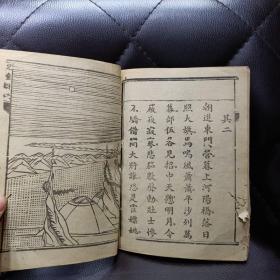 其二
朝進東門營暮上河陽橋落日
照大旗馬鳴風蕭蕭平沙列萬
幕部伍各見招中天懸明月令
嚴夜寂寥悲笳數聲動壯士慘
不驕借問大將誰恐是霍嫖姚